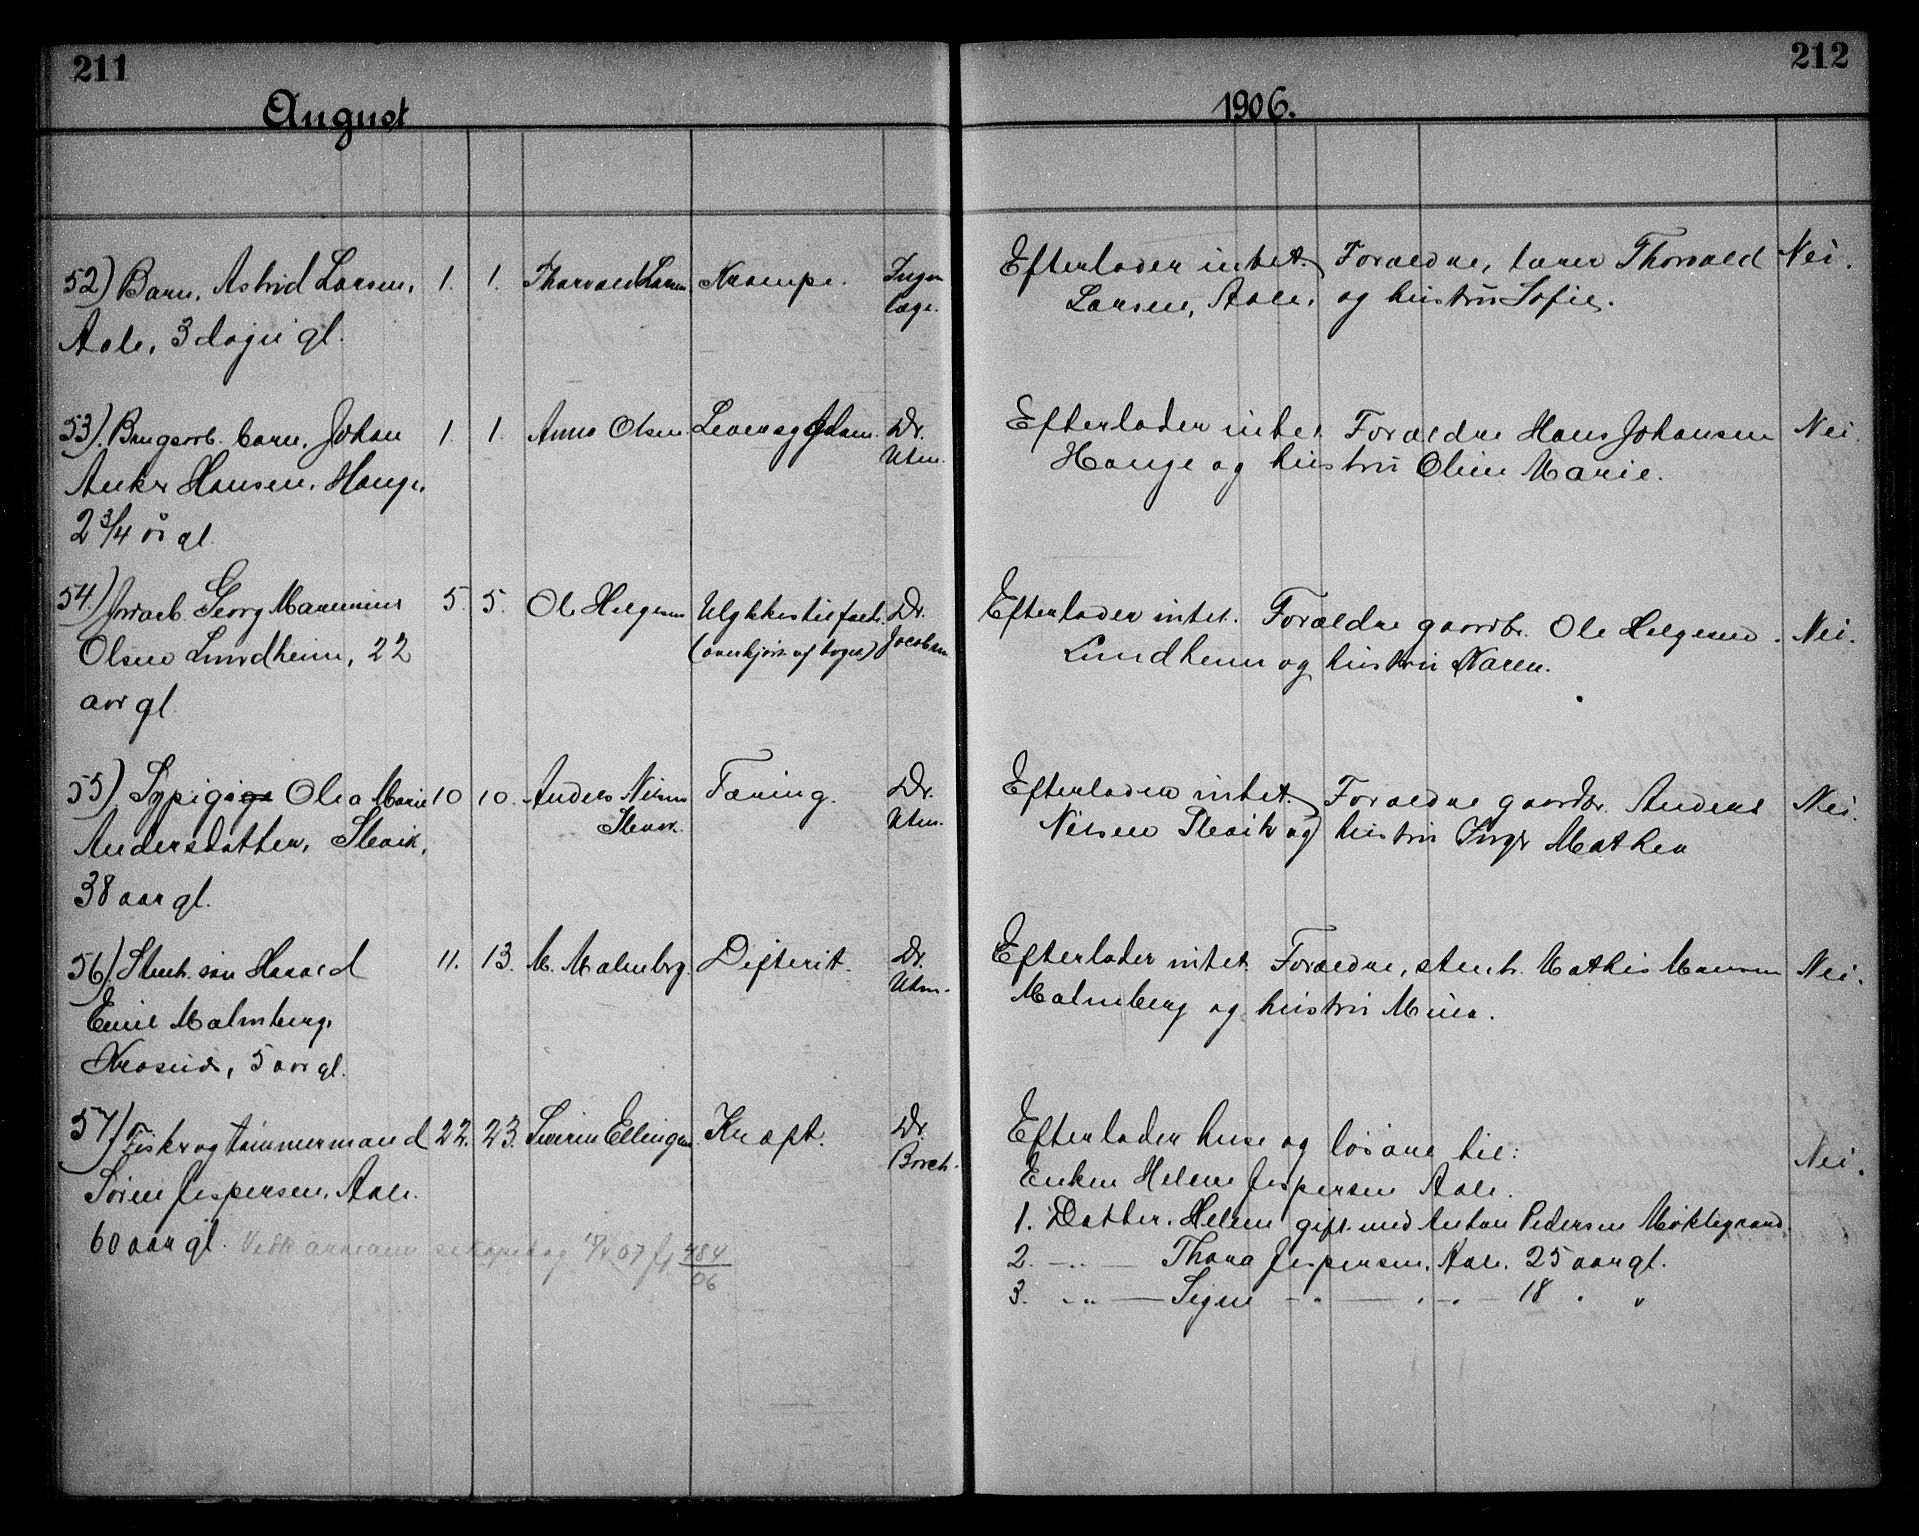 211
August
52) Barn, Astrid Larsen, 1. 1. Thorvald Larsen Krampe. Ingen
læge.
Aale, 3 dage gl.
53). barn, Johan 1. 1. Anna Olsen Dr.
Utne.
Anker Hansen, Hauge,
2 3/4 år gl.
54) Jordarb. Georg Marenius 5. 5. Ole Helgesen Ulykkestilfælde Dr.
Olsen Lundheim, 22 (overkjørt af toget) Jacobsen
aar gl.
55) Sypige Olea Marie 10 10. Anders Nilsen Tæring. Dr.
Utne.
Andersdatter, Slevik,
38 aar gl.
56) Stenh. søn Harald 11. 13. M. Malmberg. Difterit. Dr.
Utne.
Emil Malmberg,
5 aar gl.
57) Fisker og tømmermand 22. 23. Severin Ellingsen Kræft. Dr.
Borch.
Søren Jespersen, Aale.
60 aar gl. 07 484
06
212
1906.
Efterlader intet. Forældre, lærer Thorvald Nei.
Larsen, Aale, og hustru Sofie.
Efterlader intet. Forældre Hans Johansen Nei.
Hauge og hustru Oline Marie.
Efterlader intet. Forældre gaardbr. Ole Helgesen Nei.
Lundheim og hustru Karen.
Efterlader intet. Forældre gaardbr. Anders Nei.
Nilsen Slevik og hustru Inger Mathea
Efterlader intet. Forældre, stenh. Mathis Nei.
Malmberg og hustru Mina.
Efterlader huse og løsøre til: Nei.
Enken Helene Jespersen Aale.
1. Datter. Helene gift med Anton Pedersen Møklegaard.
2. -"- Thora Jespersen, Aale. 25 aar gl.
3. -"- Signe -"- -"- 18 " "